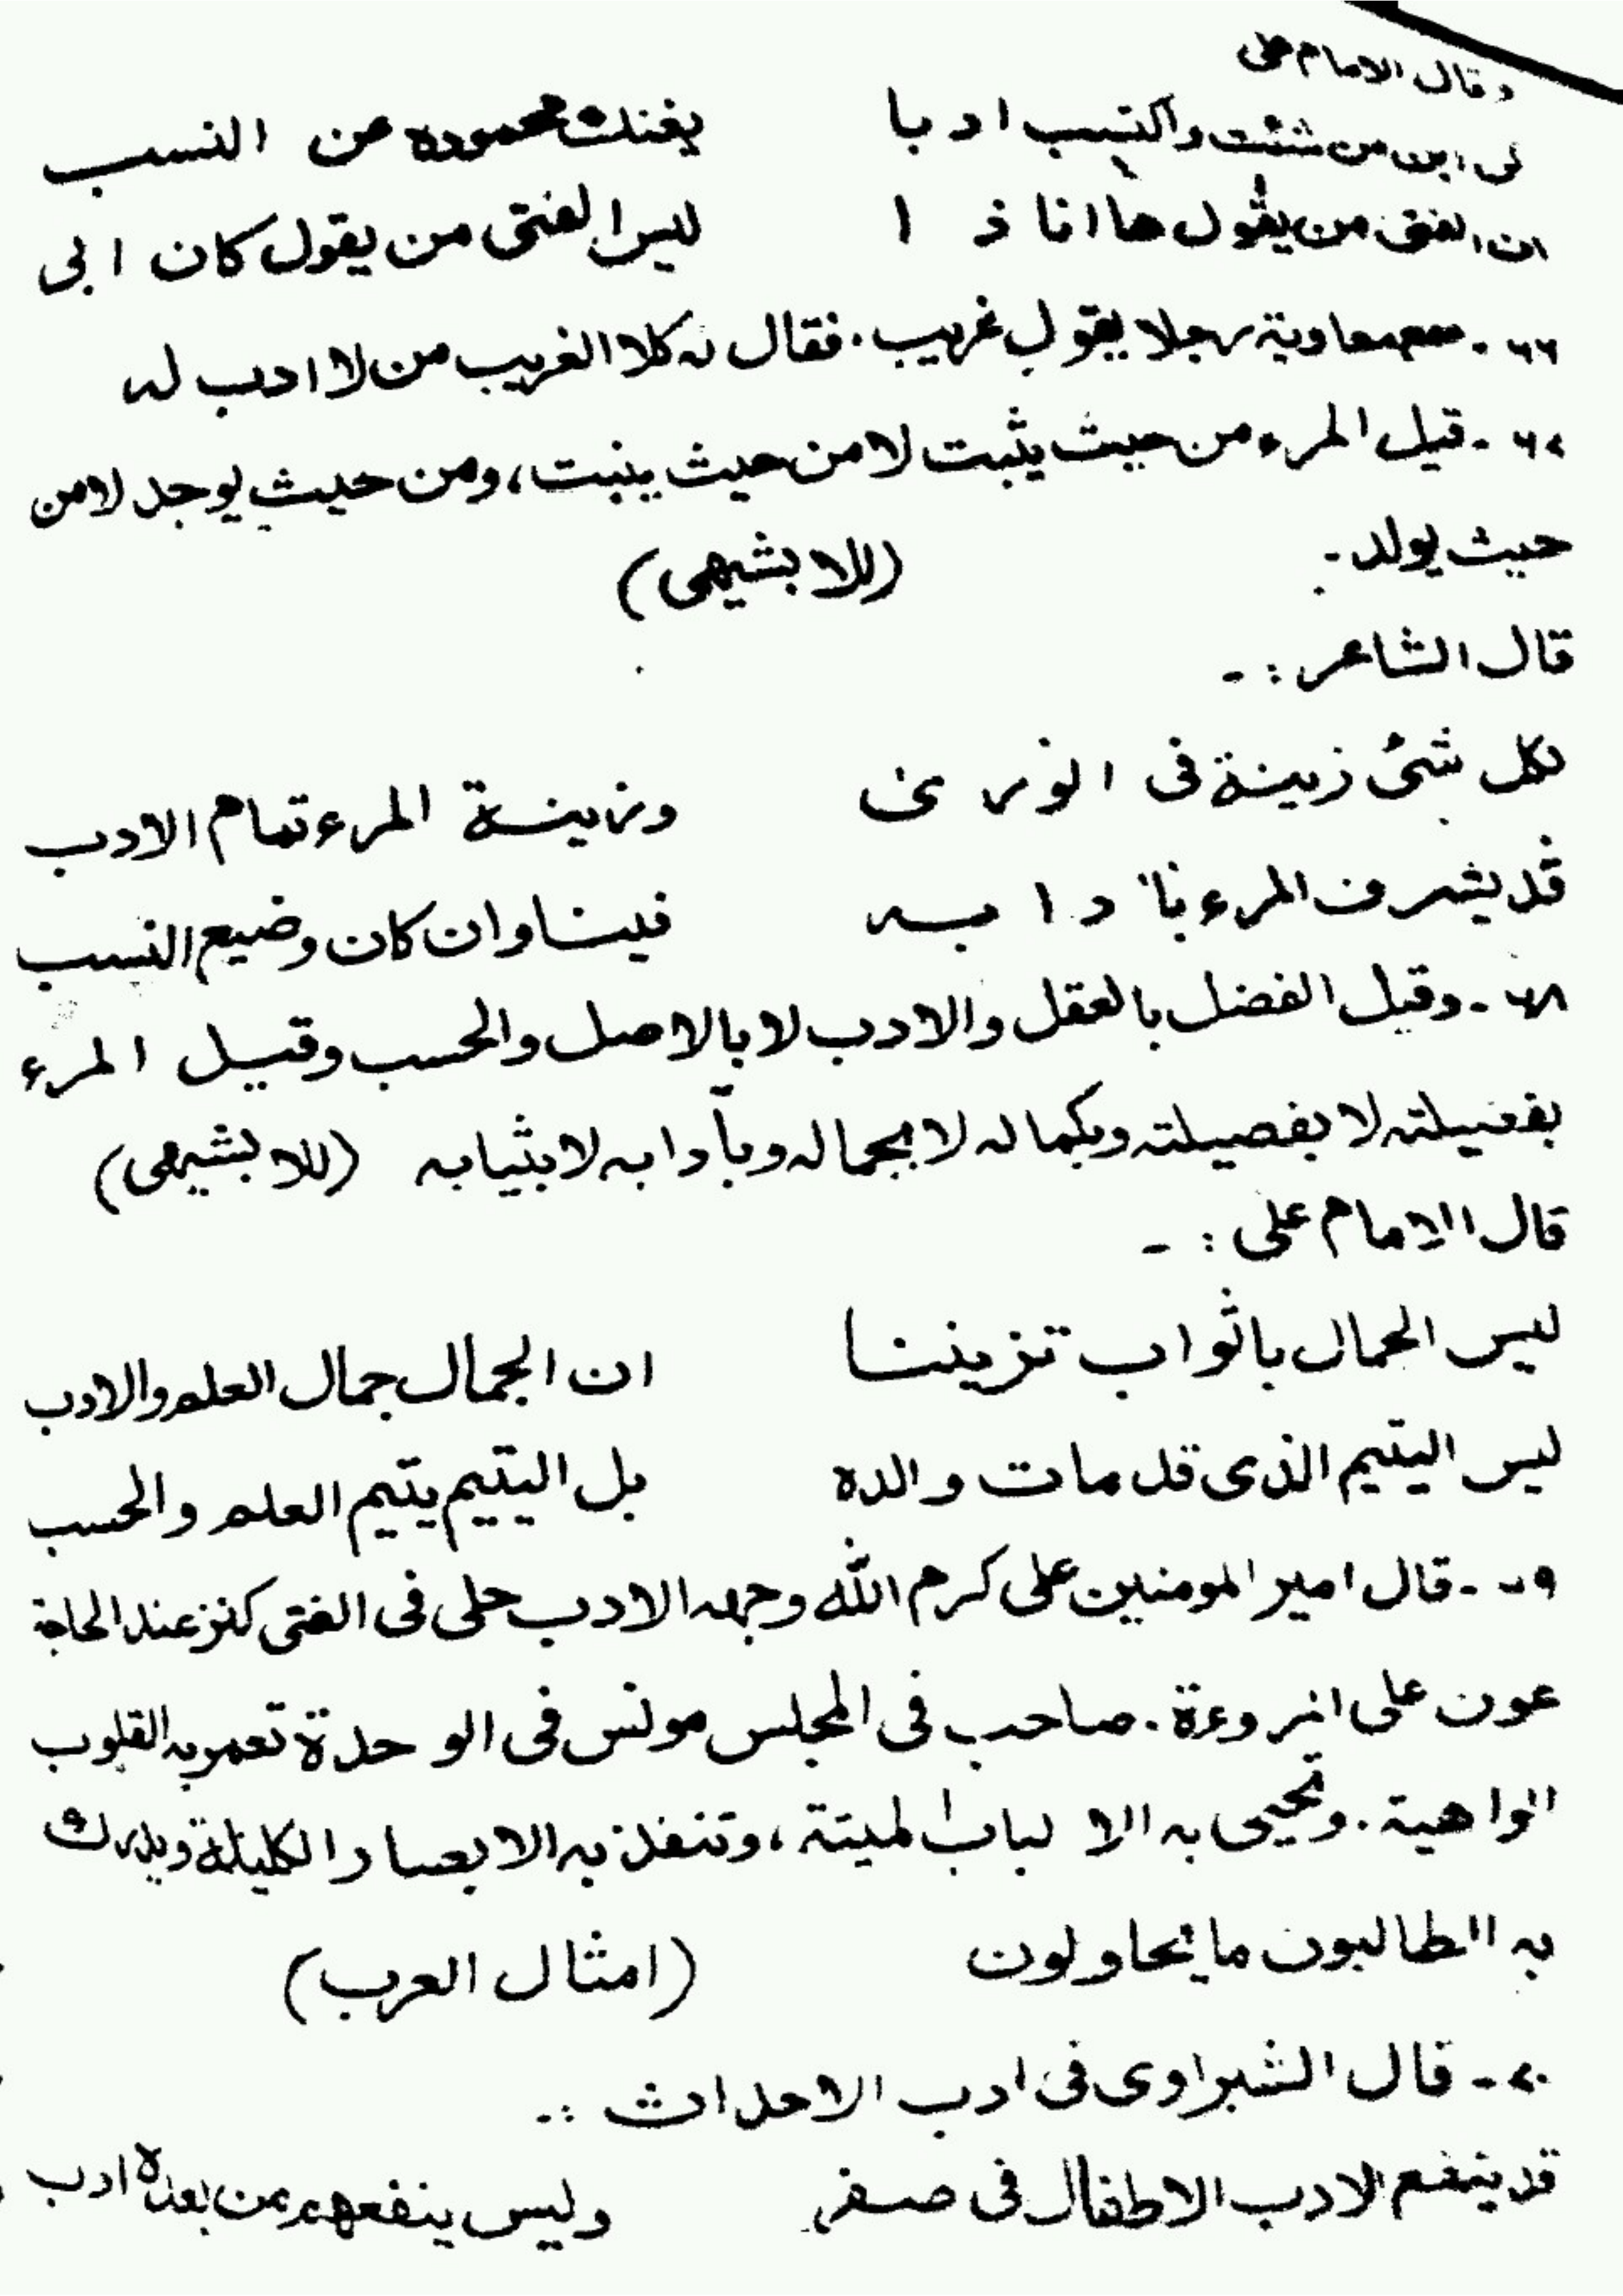 وقال الامام على
كن ابن من شئت واكتسب ادبا يغنك محموده عن النسب
ان الفتى من يقول ها انا ذا ليس الفتى من يقول كان ابى
٦٦ - سمع معاوية رجلا يقول غريب. فقال له كلا الغريب من لا ادب له
٦٧ - قيل المرء من حيث يثبت لا من حيث ينبت، ومن حيث يوجد لا من
حيث يولد - (للابشيهى)
قال الشاعر : -
لكل شئ زينة فى الورى وزينة المرء تمام الادب
قد يشرف المرء بآدابه فينا وان كان وضيع النسب
٦٨ - وقيل الفضل بالعقل والادب لا بالاصل والحسب وقيل المرء
بفضيلته لا بفصيلته وبكماله لا بجماله وبآدابه لا بثيابه (للابشيهى)
قال الامام على : -
ليس الجمال باثواب تزيننا ان الجمال جمال العلم والادب
ليس اليتيم الذى قد مات والده بل اليتيم يتيم العلم والحسب
٦٩ - قال امير المومنين على كرم الله وجهه الادب حلى فى الفتى كنز عند الحاجة
عون على المروءة. صاحب فى المجلس مونس فى الوحدة تعمر به القلوب
الواهية. وتحيى به الالباب الميتة، وتنفذ به الابصار الكليلة ويدرك
به الطالبون ما يحاولون (امثال العرب)
٧٠ - قال الشبراوى فى ادب الاحداث : -
قد ينفع الادب الاطفال فى صغر وليس ينفعهم من بعده ادب